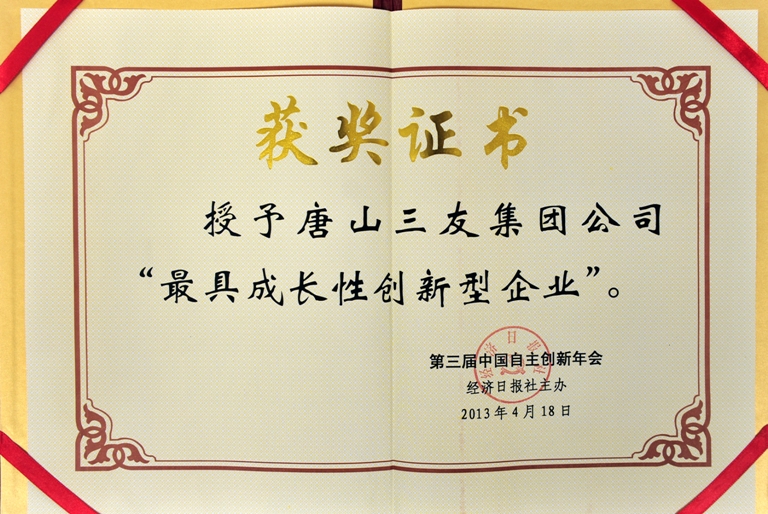 获奖证书
授予唐山三友集团公司
“最具成长性创新型企业”。
第三届中国自主创新年会
经济日报社主办
2013年4月18日
经济日报社